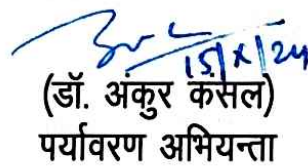 15/X/24
(डॉ. अंकुर कंसल)
पर्यावरण अभियन्ता